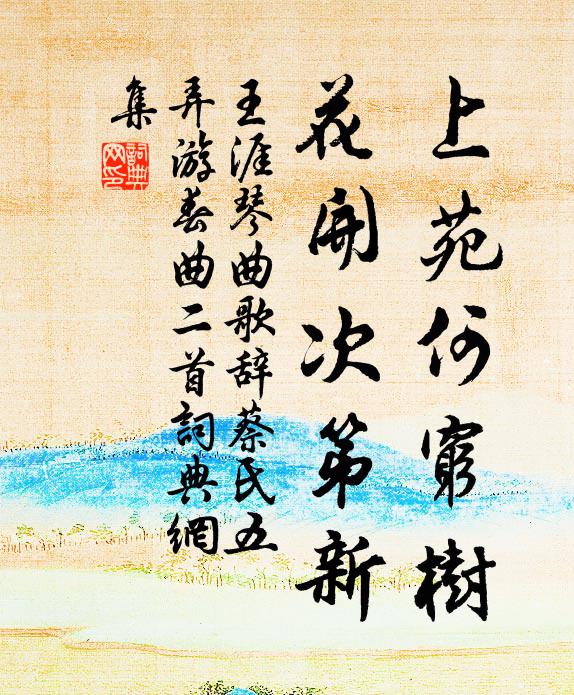 上苑何窮樹
花開次第新
王涯琴曲歌辭蔡氏五
弄游春曲二首詞典網
集
詞典
网印